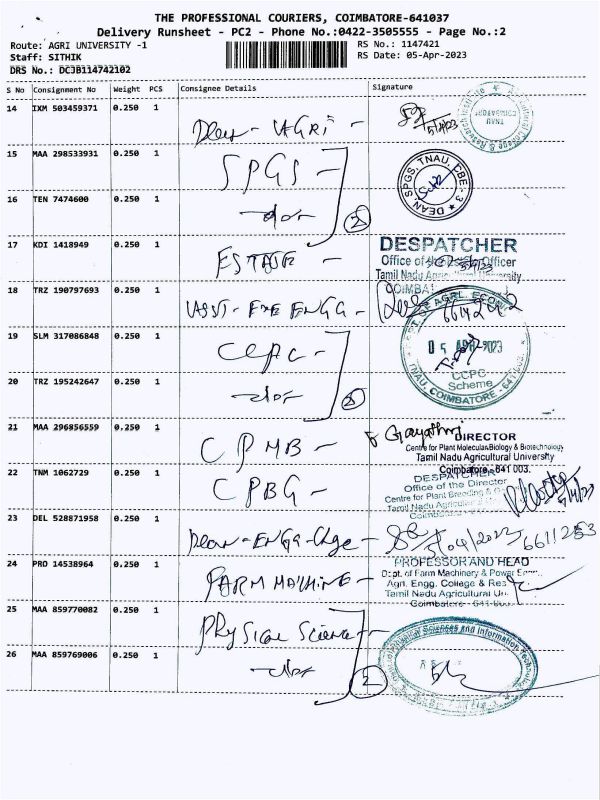 THE PROFESSIONAL COURIERS, COIMBATORE-641037
Delivery Runsheet - PC2 - Phone No.:0422-3505555 - Page No.:2
Route: AGRI UNIVERSITY -1
RS No.: 1147421
Staff: SITHIK
RS Date: 05-Apr-2023
DRS No.: DCJB114742102
S No Consignment No Weight PCS Consignee Details Signature
14 IXM 503459371 0.250 1
Dean - AGRI -
5/4/23
TNAU
COIMBATORE
15 MAA 298533931 0.250 1
SPGS -
DEAN, SPGS, TNAU, CBE-3
16 TEN 7474600 0.250 1
-do- 2
17 KDI 1418949 0.250 1
ESTATE -
DESPATCHER
Office of the Officer
Tamil Nadu Agricultural University
18 TRZ 190797693 0.250 1
ASST - EXE ENGG -
19 SLM 317086848 0.250 1
CCPC -
05 APR 2023
CCPC
Scheme
TNAU, COIMBATORE - 641 003.
20 TRZ 195242647 0.250 1
-do- 2
21 MAA 296856559 0.250 1
CPMB -
Gayathri
DIRECTOR
Centre for Plant Molecular Biology & Biotechnology
Tamil Nadu Agricultural University
Coimbatore - 641 003.
22 TNM 1062729 0.250 1
CPBG -
DESPATCHER
Office of the Director
Centre for Plant Breeding & G
Tamil Nadu Agricultural
23 DEL 528871958 0.250 1
Dean - ENGG - Clge -
5/04/2023
6611253
24 PRO 14538964 0.250 1
FARM MACHINE -
PROFESSOR AND HEAD
Dept. of Farm Machinery & Power
Agri. Engg. College & Res
Tamil Nadu Agricultural Un
Coimbatore - 641 003
25 MAA 859770082 0.250 1
Physical Science -
Physical Sciences and Information Technology
26 MAA 859769006 0.250 1
-do- 2